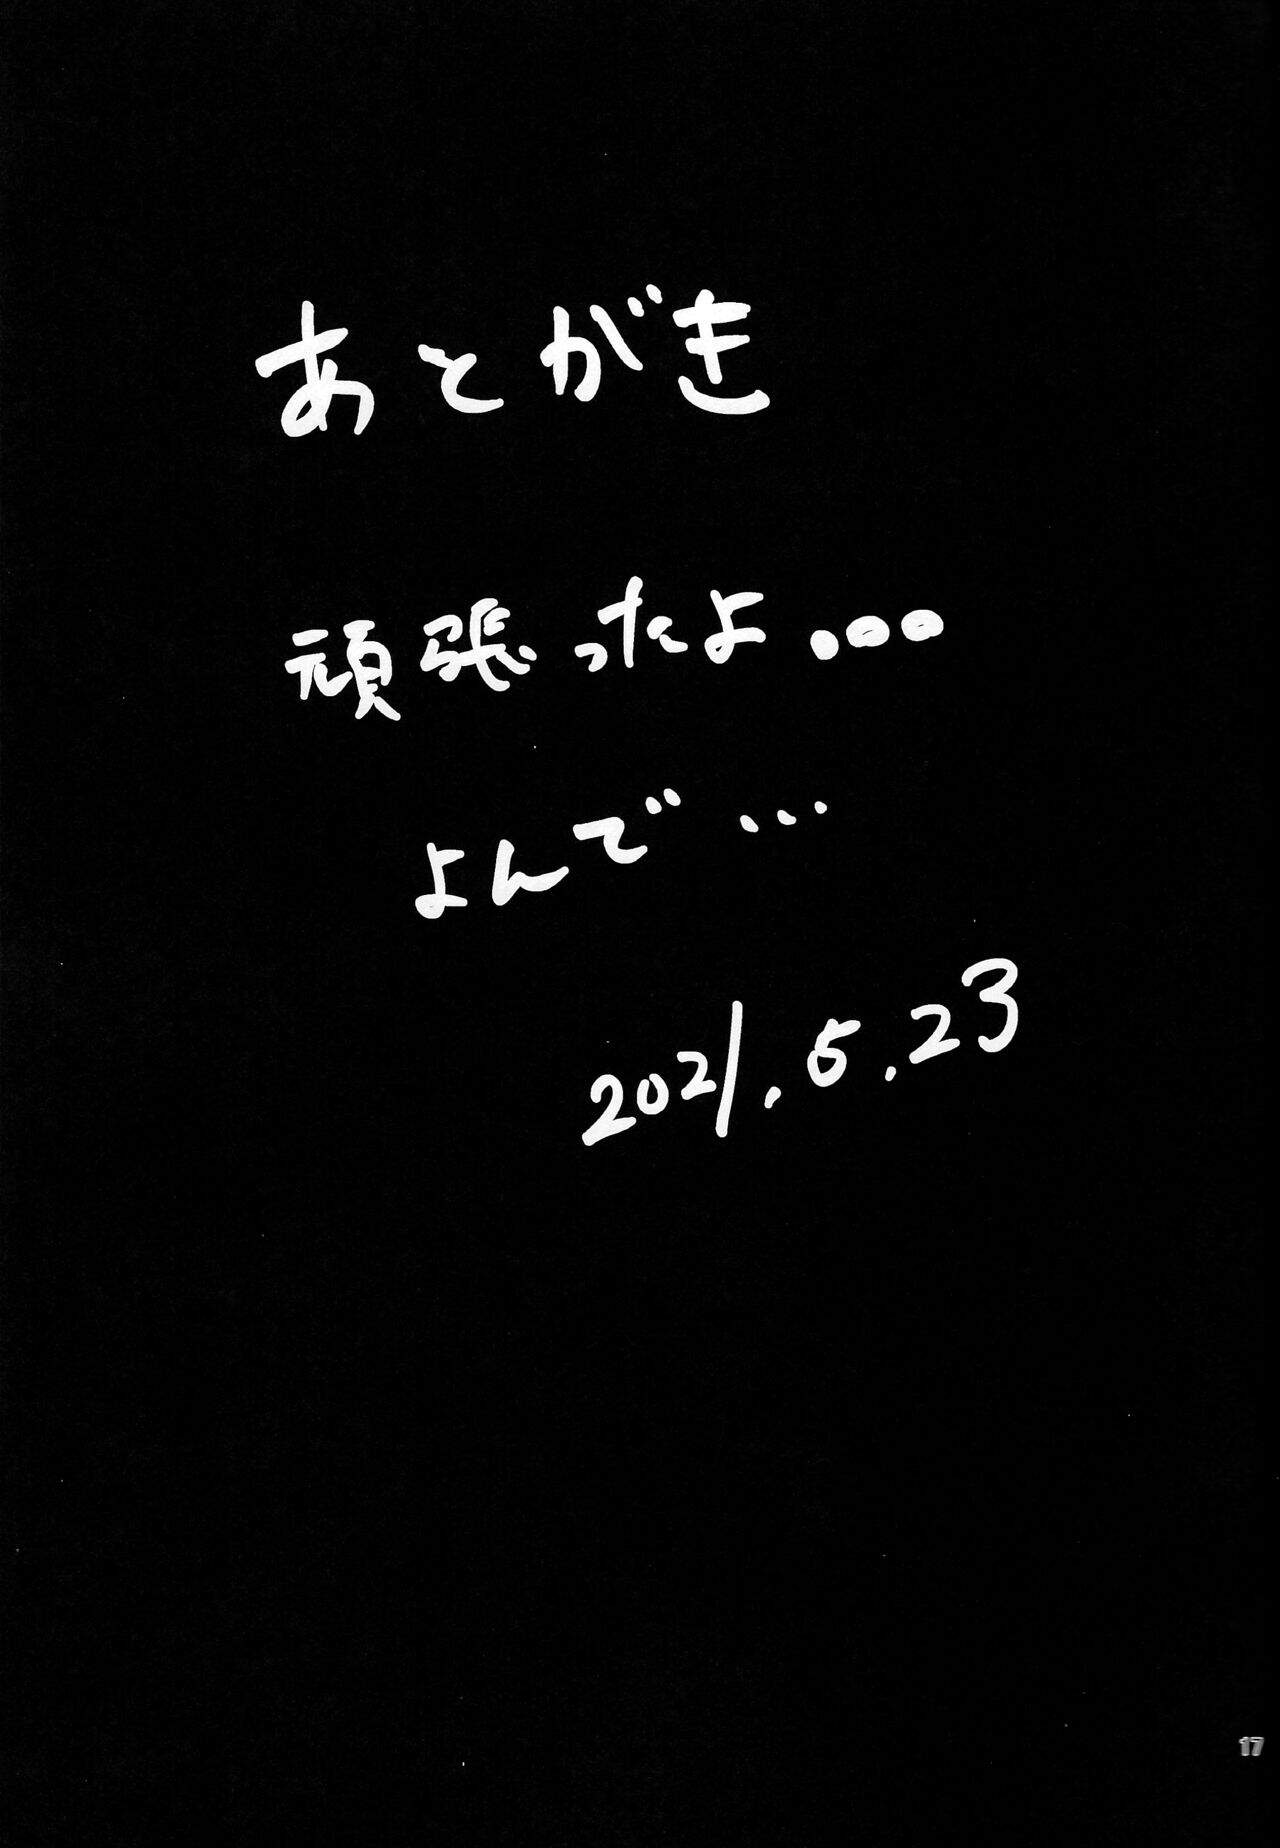 あとがき
頑張ったよ...
よんで...
2021.5.23
17